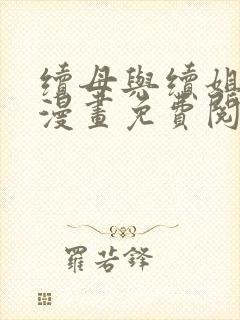 續母與續姐
漫畫免費閱
羅若鋒